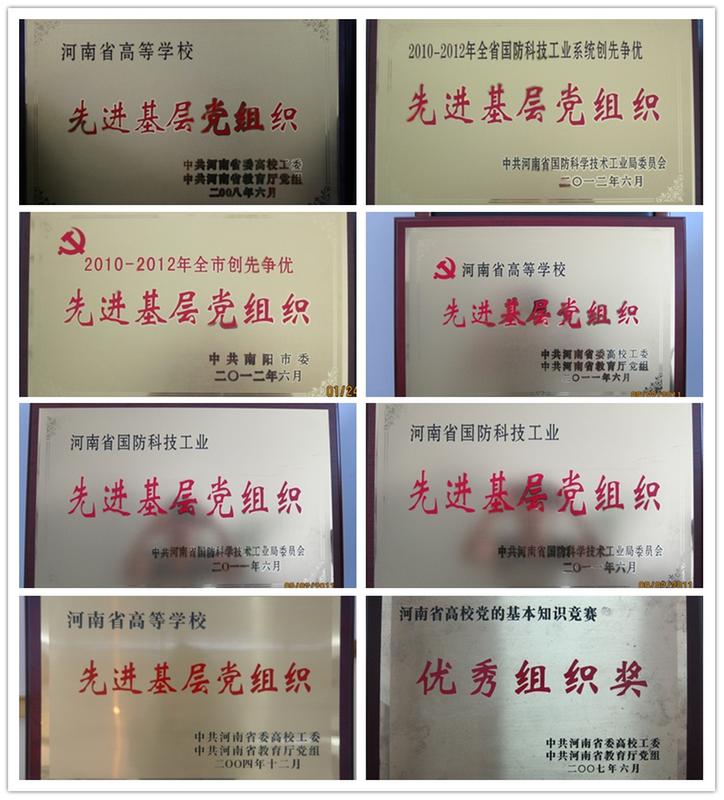 河南省高等学校
先进基层党组织
中共河南省委高校工委
中共河南省教育厅党组
二00八年六月
2010-2012年全省国防科技工业系统创先争优
先进基层党组织
中共河南省国防科学技术工业局委员会
二〇一二年六月
2010-2012年全市创先争优
先进基层党组织
中共南阳市委
二〇一二年六月
01/24
河南省高等学校
先进基层党组织
中共河南省委高校工委
中共河南省教育厅党组
二〇一一年六月
河南省国防科技工业
先进基层党组织
中共河南省国防科学技术工业局委员会
二〇一一年六月
河南省国防科技工业
先进基层党组织
中共河南省国防科学技术工业局委员会
二〇一一年六月
河南省高等学校
先进基层党组织
中共河南省委高校工委
中共河南省教育厅党组
二〇〇四年十二月
河南省高校党的基本知识竞赛
优秀组织奖
中共河南省委高校工委
中共河南省教育厅党组
二〇〇七年六月